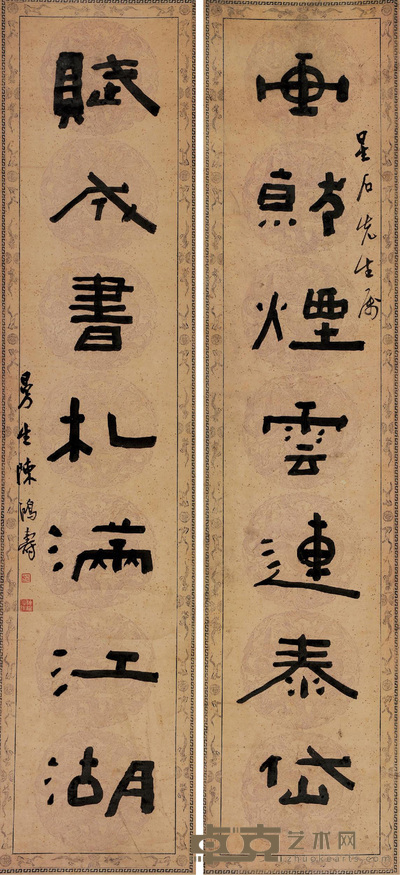 画就煙雲連泰岱
星石先生屬
賦成書札滿江湖
曼生陳鴻壽
艺术网